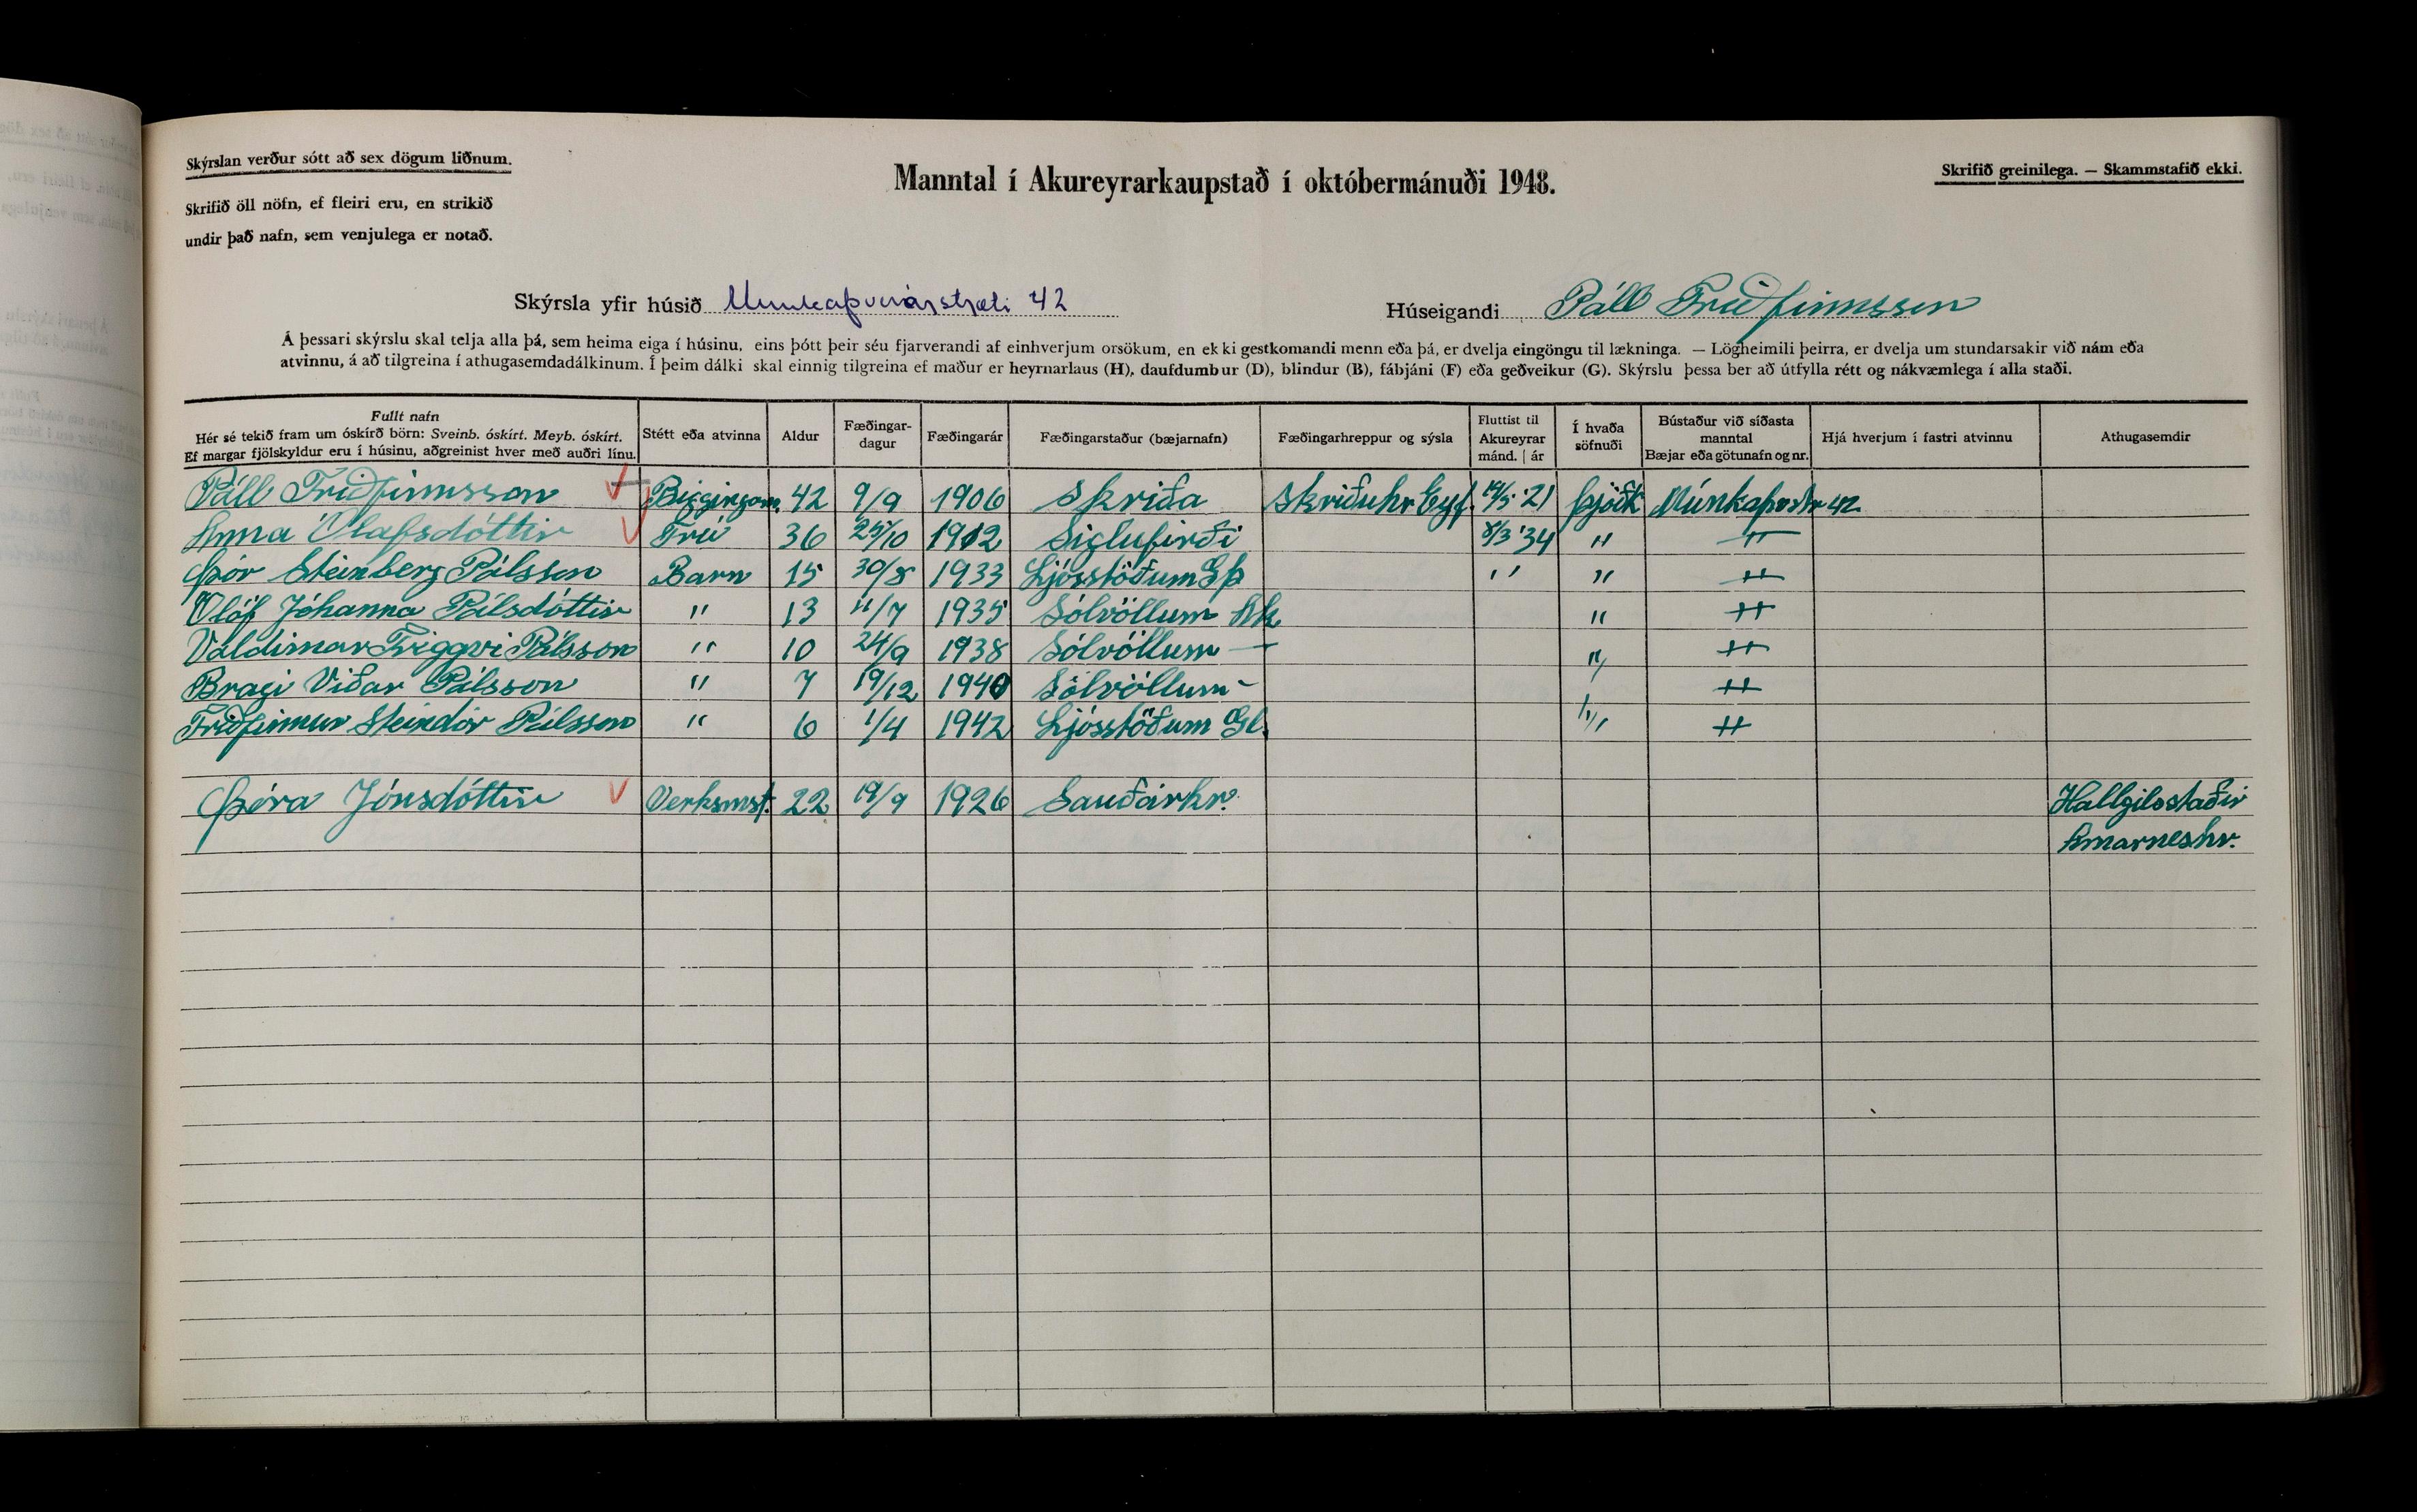 Skýrslan verður sótt að sex dögum liðnum.
Skrifið öll nöfn, ef fleiri eru, en strikið
undir það nafn, sem venjulega er notað.
Manntal í Akureyrarkaupstað í októbermánuði 1948.
Skrifið greinilega. — Skammstafið ekki.
Skýrsla yfir húsið Munkaþverárstræti 42
Húseigandi Páll Friðfinnsson
Á þessari skýrslu skal telja alla þá, sem heima eiga í húsinu, eins þótt þeir séu fjarverandi af einhverjum orsökum, en ekki gestkomandi menn eða þá, er dvelja eingöngu til lækninga. — Lögheimili þeirra, er dvelja um stundarsakir við nám eða
atvinnu, á að tilgreina í athugasemdadálkinum. Í þeim dálki skal einnig tilgreina ef maður er heyrnarlaus (H), daufdumbur (D), blindur (B), fábjáni (F) eða geðveikur (G). Skýrslu þessa ber að útfylla rétt og nákvæmlega í alla staði.
Fullt nafn
Hér sé tekið fram um óskírð börn: Sveinb. óskírt. Meyb. óskírt.
Ef margar fjölskyldur eru í húsinu, aðgreinist hver með auðri línu.
Stétt eða atvinna
Aldur
Fæðingar-
dagur
Fæðingarár
Fæðingarstaður (bæjarnafn)
Fæðingarhreppur og sýsla
Fluttist til
Akureyrar
mánd. | ár
Í hvaða
söfnuði
Bústaður við síðasta
manntal
Bæjar eða götunafn og nr.
Hjá hverjum í fastri atvinnu
Athugasemdir
Páll Friðfinnsson Byggingam. 42 9/9 1906 Skriða Skriðuhr Eyf. 14/5 '21 Þjóðk Múnkaþvstr 42
Anna Ólafsdóttir Frú 36 25/10 1912 Siglufirði 8/3 '34 " "
Þór Steinberg Pálsson Barn 15 30/8 1933 Ljósstöðum Gþ " " "
Ólöf Jóhanna Pálsdóttir " 13 11/7 1935 Sólvöllum Ak " "
Valdimar Tryggvi Pálsson " 10 24/9 1938 Sólvöllum — " "
Bragi Viðar Pálsson " 7 19/12 1940 Sólvöllum - " "
Friðfinnur Steindór Pálsson " 6 1/4 1942 Ljósstöðum Gl. " "
Þóra Jónsdóttir Verksmst. 22 19/9 1926 Sauðárkr. Hallgilsstaðir
Arnarneshr.